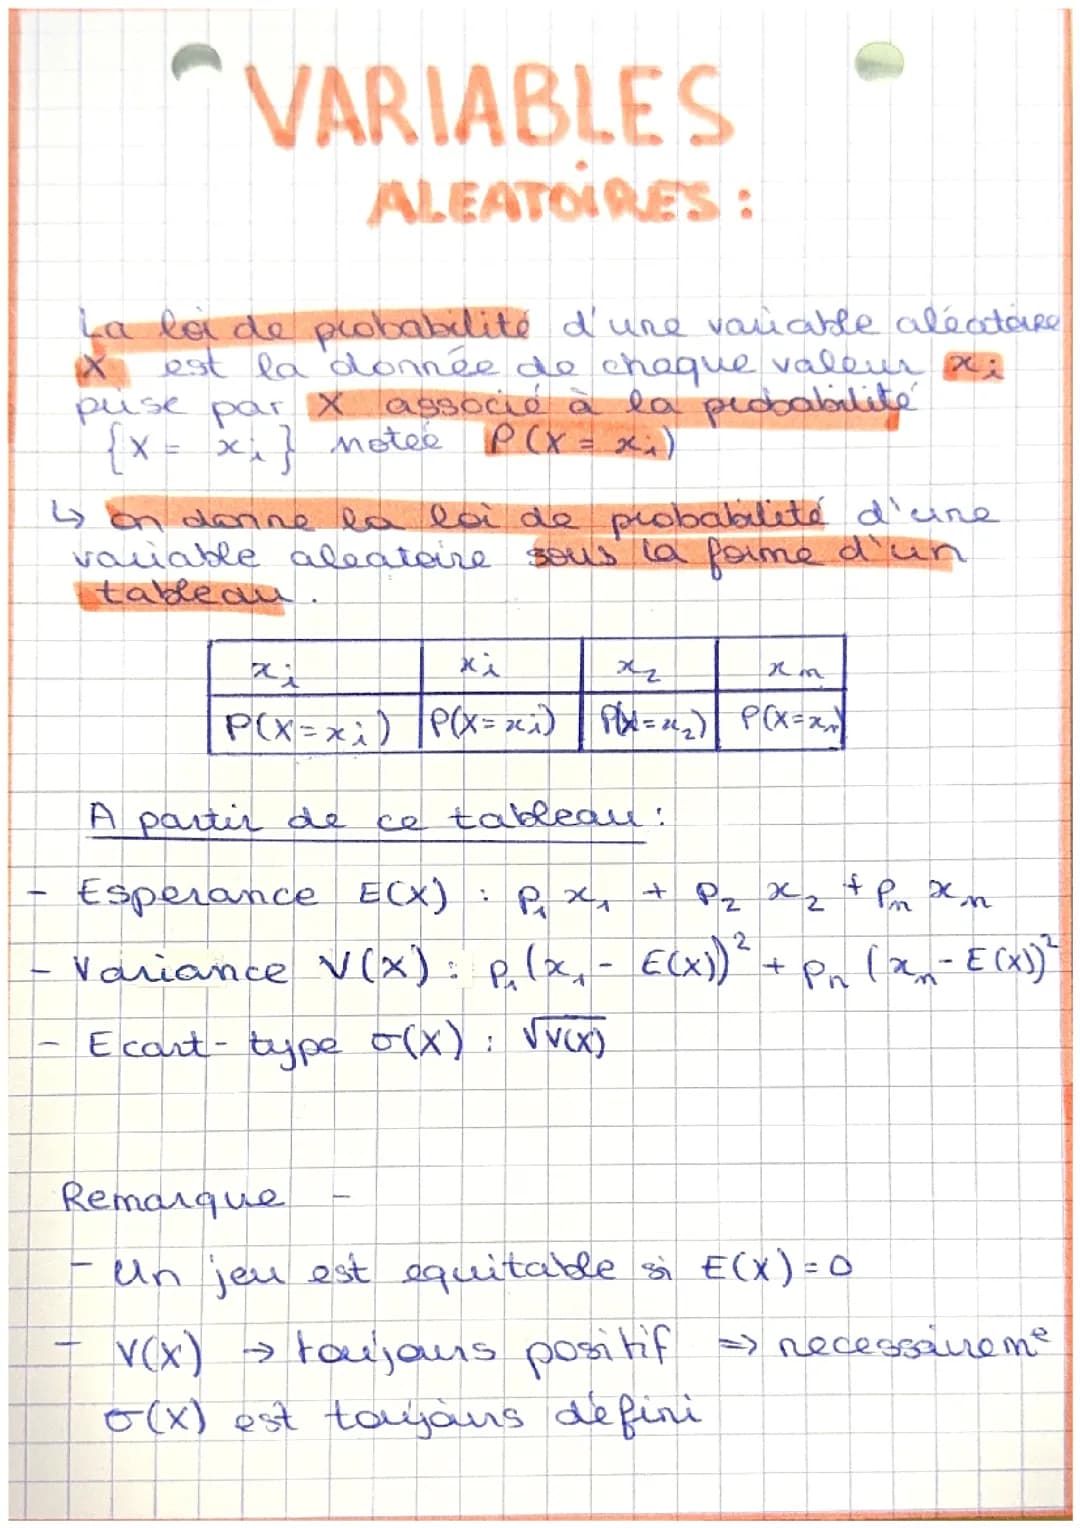 VARIABLES
ALEATOIRES :
La loi de probabilité d'une variable aléatoire
X est la donnée de chaque valeur xi
prise par X associé à la probabilité
{X = xi} notée P(X = xi)
↳ on donne la loi de probabilité d'une
variable aleatoire sous la forme d'un
tableau.
xi xi x2 xn
P(X=xi) P(X=xi) P(X=x2) P(X=xn)
A partir de ce tableau :
- Esperance E(X) : p1 x1 + p2 x2 + pn xn
- Variance V(X) : p1 (x1 - E(X))² + pn (xn - E(X))²
- Ecart-type σ(X) : √V(X)
Remarque -
- Un jeu est equitable si E(X) = 0
- V(X) → toujours positif => necessaireme
σ(X) est toujours défini